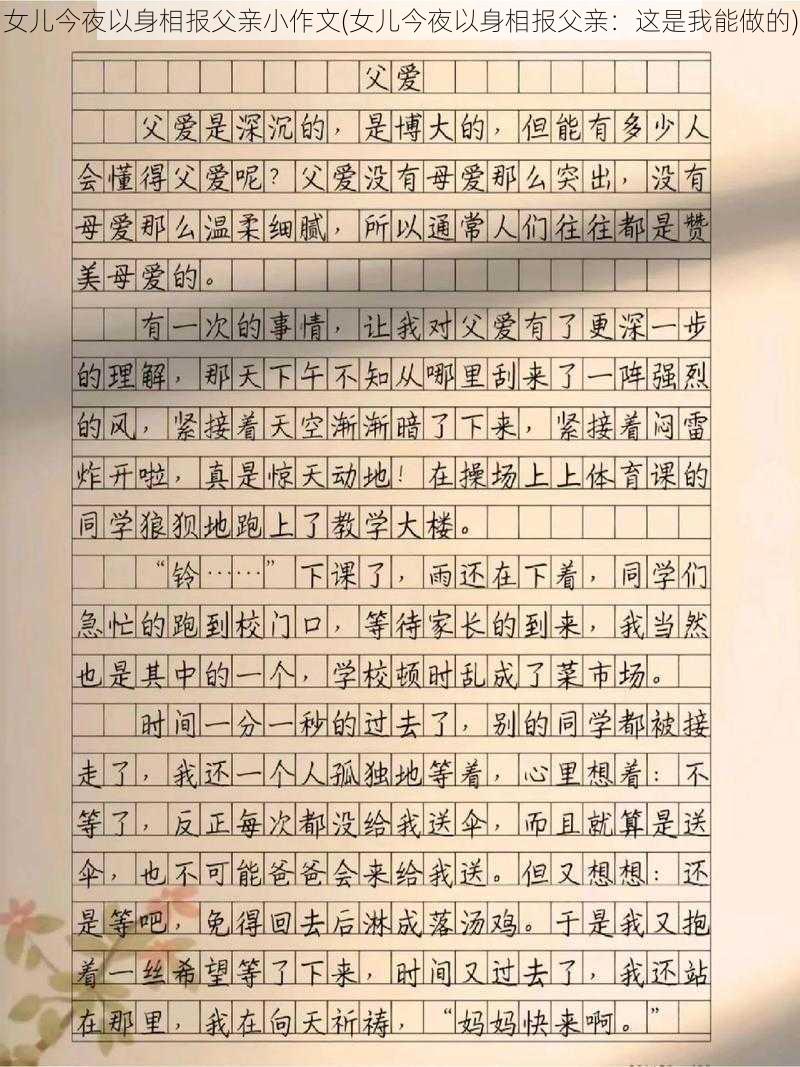 女儿今夜以身相报父亲小作文(女儿今夜以身相报父亲：这是我能做的)
父爱
父爱是深沉的，是博大的，但能有多少人
会懂得父爱呢？父爱没有母爱那么突出，没有
母爱那么温柔细腻，所以通常人们往往都是赞
美母爱的。
有一次的事情，让我对父爱有了更深一步
的理解，那天下午不知从哪里刮来了一阵强烈
的风，紧接着天空渐渐暗了下来，紧接着闷雷
炸开啦，真是惊天动地！在操场上上体育课的
同学狼狈地跑上了教学大楼。
“铃……”下课了，雨还在下着，同学们
急忙的跑到校门口，等待家长的到来，我当然
也是其中的一个，学校顿时乱成了菜市场。
时间一分一秒的过去了，别的同学都被接
走了，我还一个人孤独地等着，心里想着：不
等了，反正每次都没给我送伞，而且就算是送
伞，也不可能爸爸会来给我送。但又想想：还
是等吧，免得回去后淋成落汤鸡。于是我又抱
着一丝希望等了下来，时间又过去了，我还站
在那里，我在向天祈祷，“妈妈快来啊。”